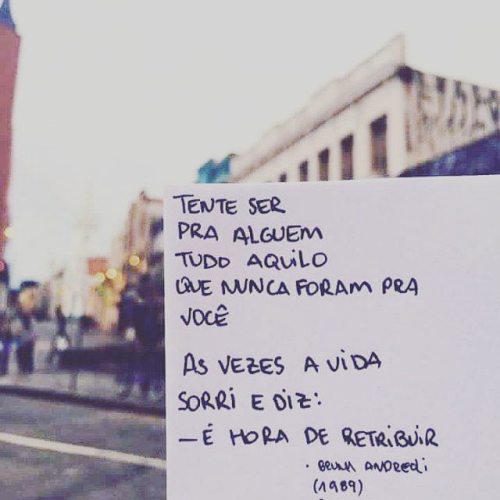 TENTE SER
PRA ALGUEM
TUDO AQUILO
QUE NUNCA FORAM PRA
VOCÊ
AS VEZES A VIDA
SORRI E DIZ:
– É HORA DE RETRIBUIR
(1989)